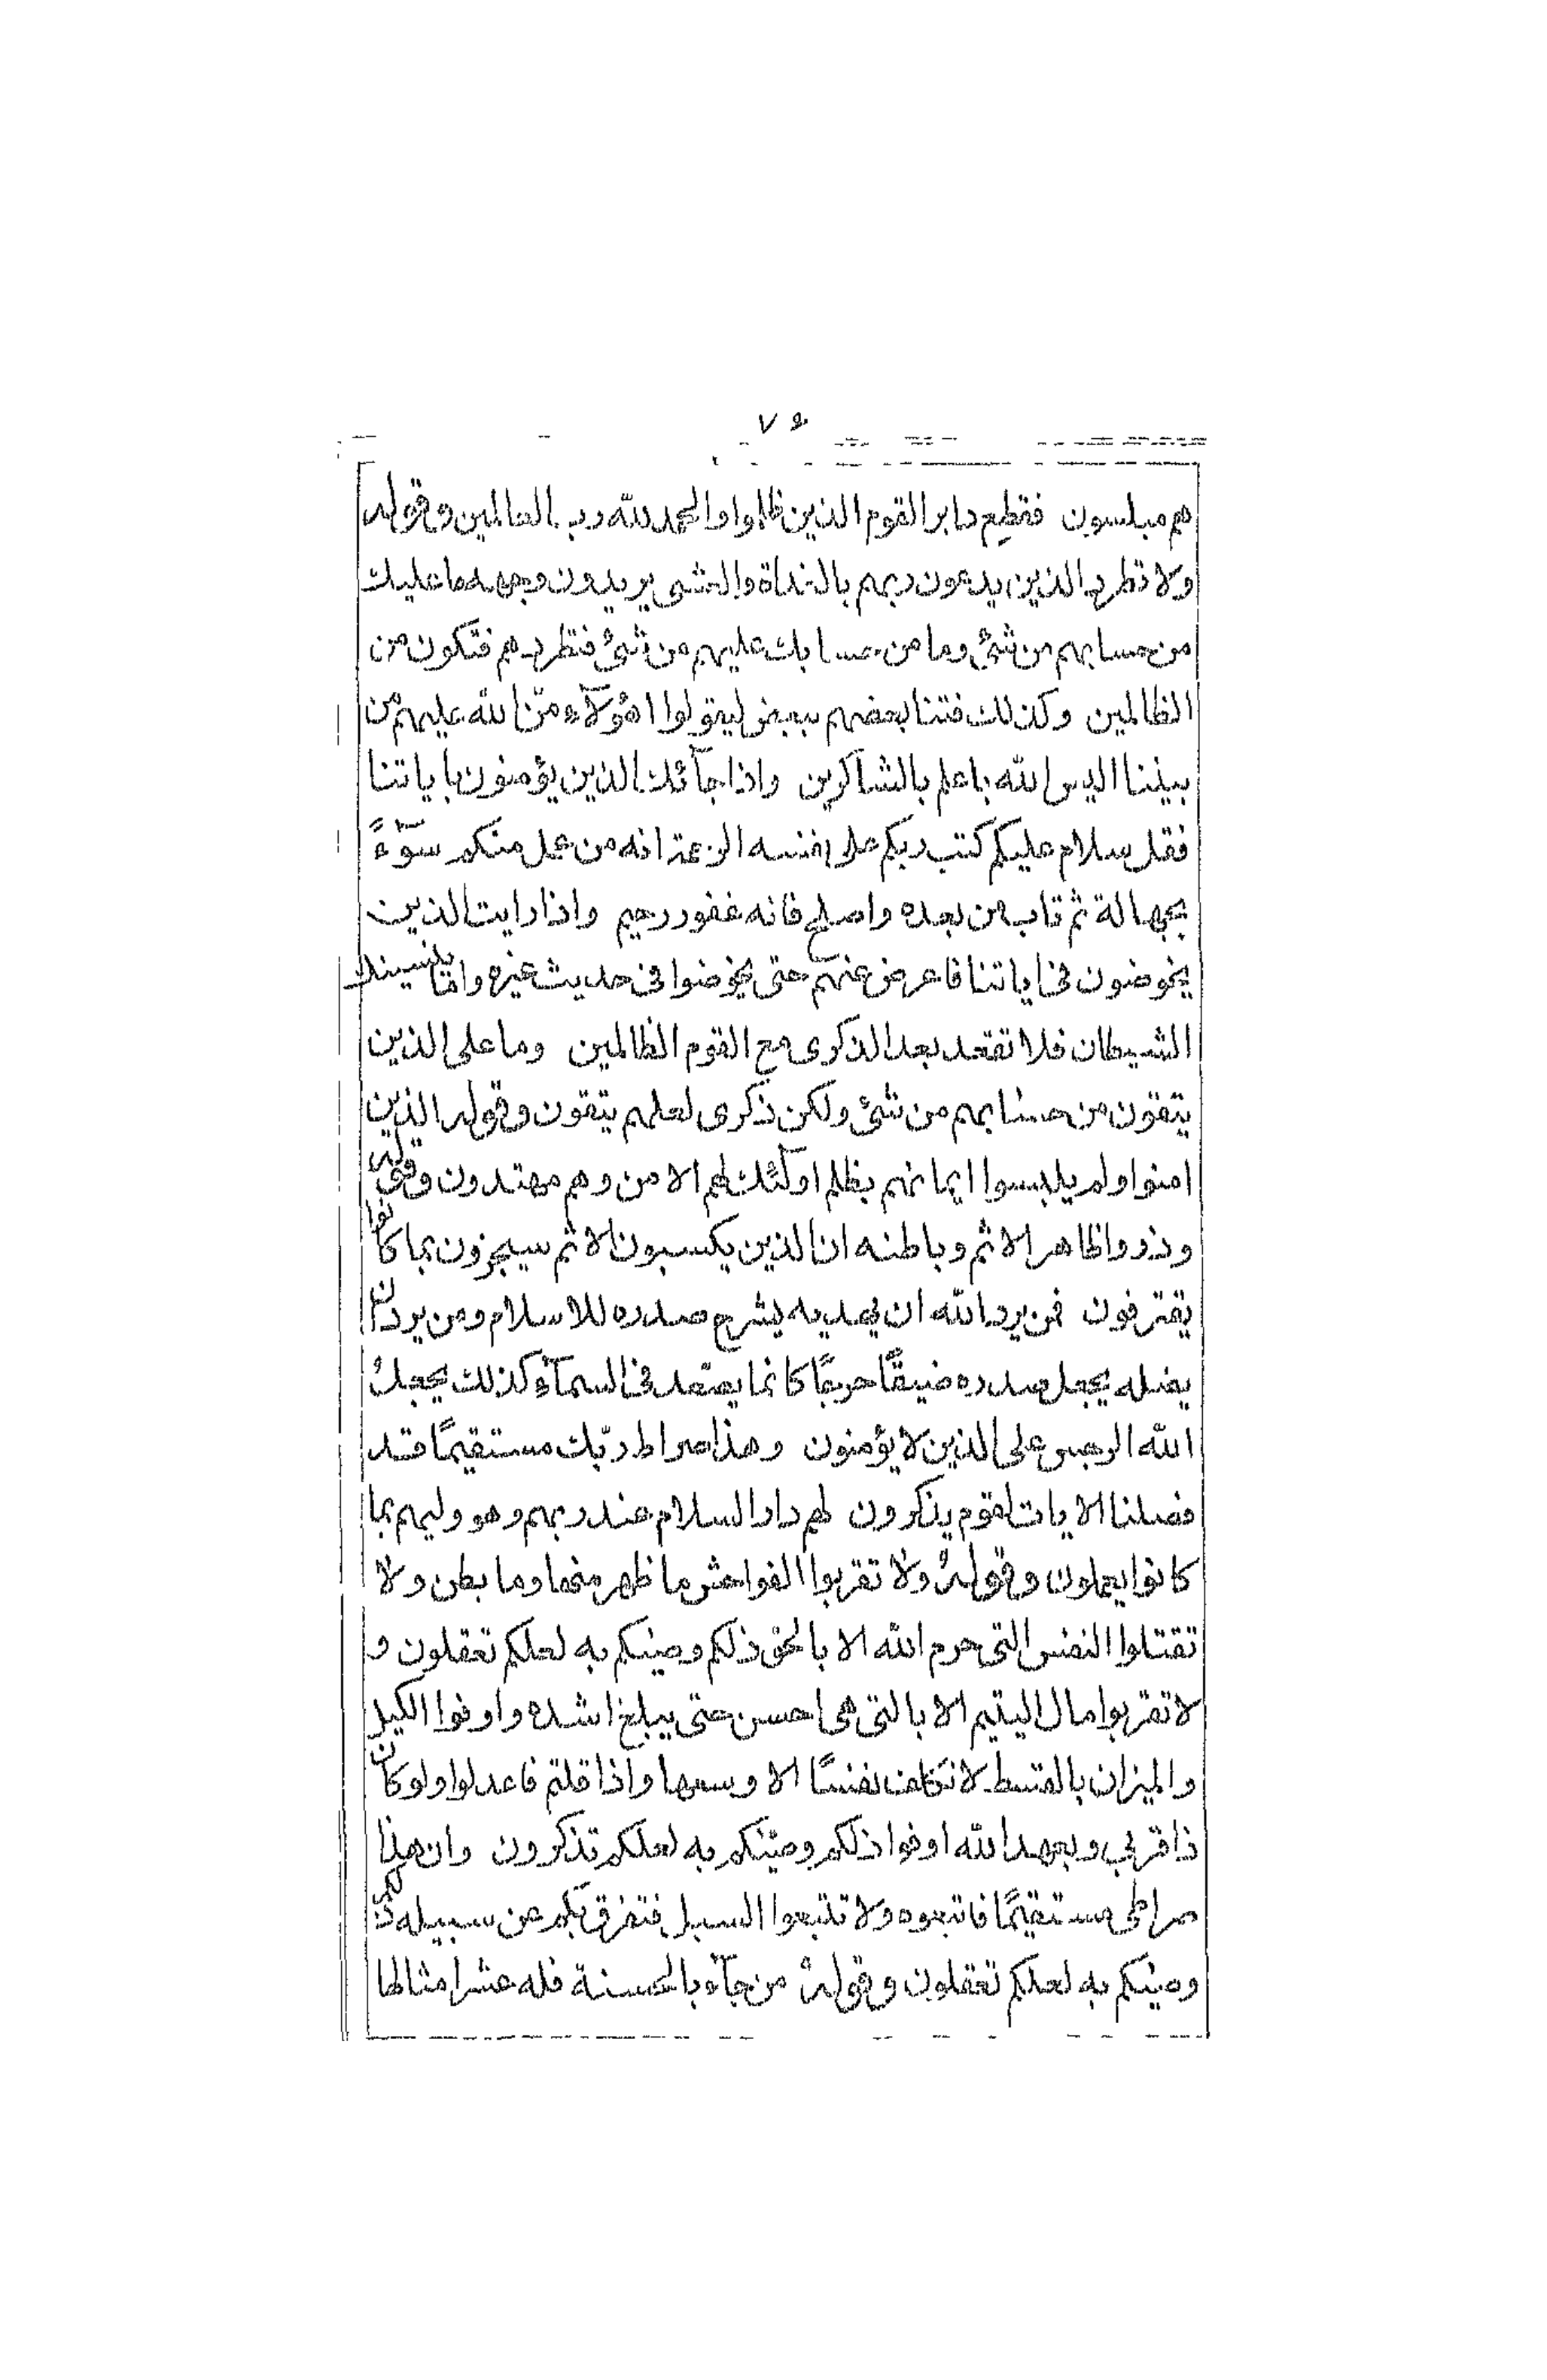 ٧٥
هم مبلسون فقطع دابر القوم الذين ظلموا والحمد لله رب العالمين وقوله
ولا تطرد الذين يدعون ربهم بالغداة والعشى يريدون وجهه ما عليك
من حسابهم من شئ وما من حسابك عليهم من شئ فتطردهم فتكون من
الظالمين وكذلك فتنا بعضهم ببعض ليقولوا اهؤلآء منّ الله عليهم من
بيننا اليس الله باعلم بالشاكرين واذا جآئك الذين يؤمنون باياتنا
فقل سلام عليكم كتب ربكم على نفسه الرحمة انه من عمل منكم سوٓءً
بجهالة ثم تاب من بعده واصلح فانه غفور رحيم واذا رايت الذين
يخوضون فى اياتنا فاعرض عنهم حتى يخوضوا فى حديث غيره واما ينسينك
الشيطان فلا تقعد بعد الذكرى مع القوم الظالمين وما على الذين
يتقون من حسابهم من شئ ولكن ذكرى لعلهم يتقون وقوله الذين
امنوا ولم يلبسوا ايمانهم بظلم اولٓئك لهم الامن وهم مهتدون وقوله
وذروا ظاهر الاثم وباطنه ان الذين يكسبون الاثم سيجزون بما كانوا
يقترفون فمن يرد الله ان يهديه يشرح صدره للاسلام ومن يرد ان
يضله يجعل صدره ضيقًا حرجًا كانما يصّعد فى السمآء كذلك يجعل
الله الرجس على الذين لا يؤمنون وهذا صراط ربّك مستقيمًا قد
فصلنا الايات لقوم يذكرون لهم دار السلام عند ربهم وهو وليهم بما
كانوا يعملون وقوله ولا تقربوا الفواحش ما ظهر منها وما بطن ولا
تقتلوا النفس التى حرم الله الا بالحق ذلكم وصيٰكم به لعلكم تعقلون و
لا تقربوا مال اليتيم الا بالتى هى احسن حتى يبلغ اشده واوفوا الكيل
والميزان بالقسط لا نكلف نفسًا الا وسعها واذا قلتم فاعدلوا ولو كان
ذا قربى وبعهد الله اوفوا ذلكم وصيّٰكم به لعلكم تذكرون وان هذا
صراطى مستقيمًا فاتبعوه ولا تتبعوا السبل فتفرق بكم عن سبيله ذلكم
وصيٰكم به لعلكم تعقلون وقوله من جآء بالحسنة فله عشر امثالها